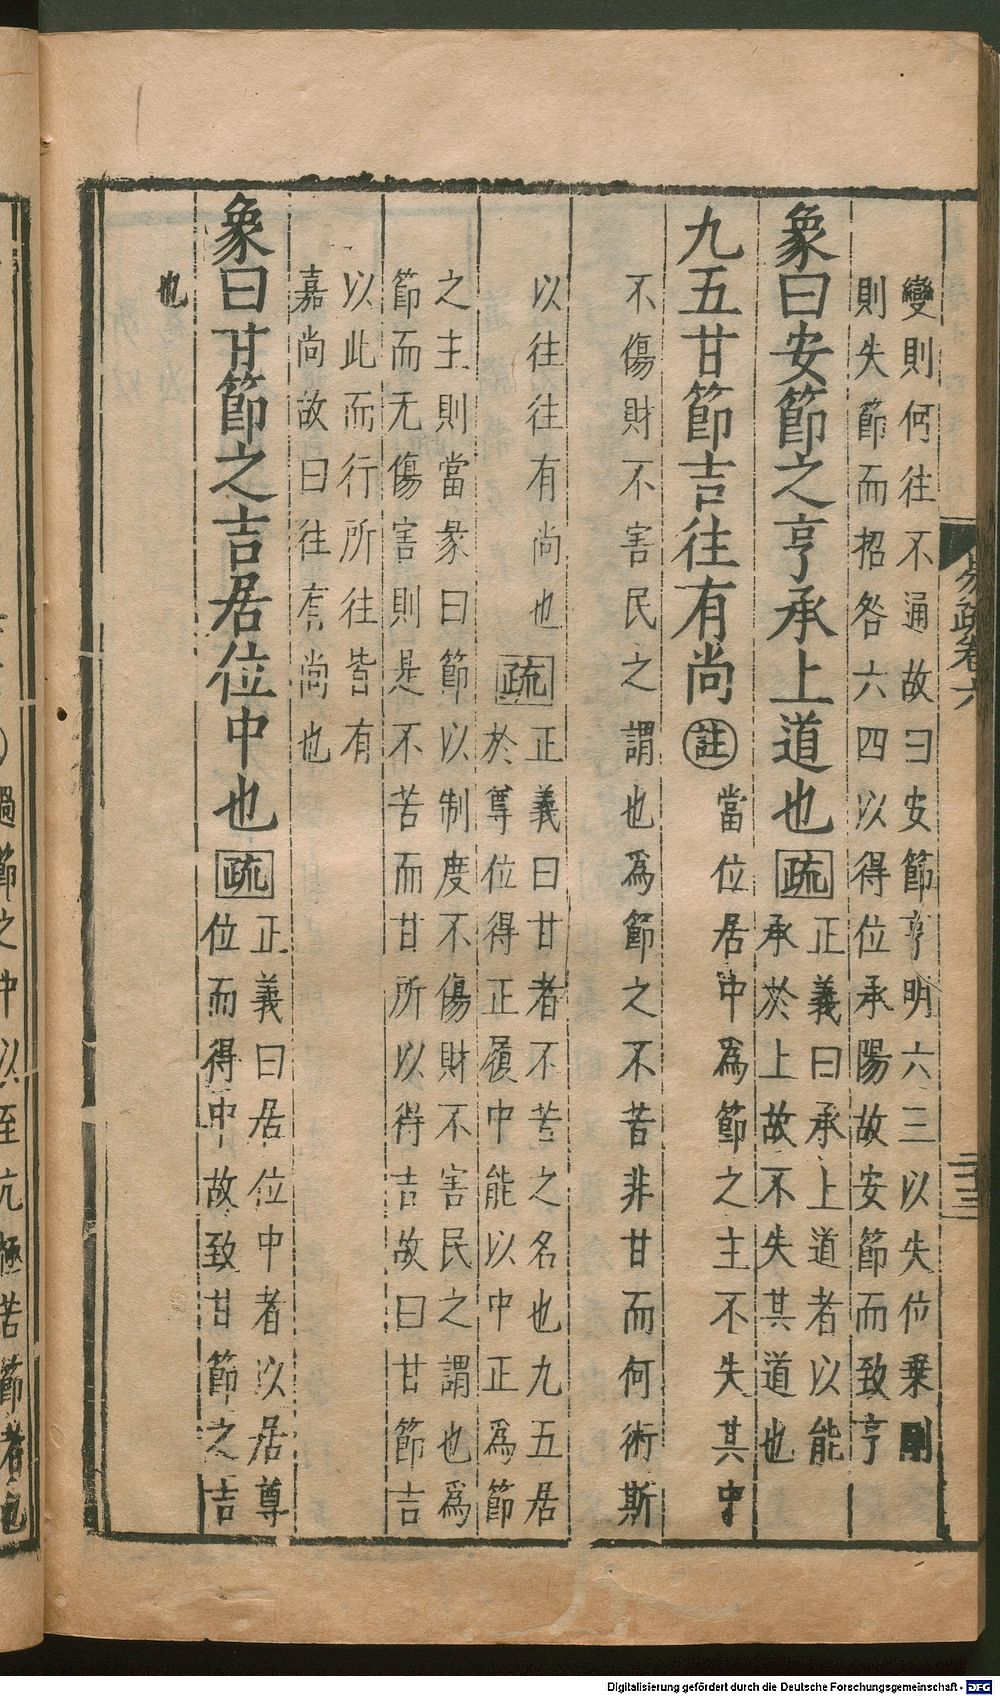 易疏卷六
二十三
變則何往不通故曰安節亨明六三以失位乗剛
則失節而招咎六四以得位承陽故安節而致亨
象曰安節之亨承上道也疏正義曰承上道者以能
承於上故不失其道也
九五甘節吉往有尚註當位居中爲節之主不失其中
不傷財不害民之謂也爲節之不苦非甘而何術斯
以往往有尚也疏正義曰甘者不苦之名也九五居
於尊位得正履中能以中正爲節
之主則當彖曰節以制度不傷財不害民之謂也爲
節而无傷害則是不苦而甘所以得吉故曰甘節吉
以此而行所往皆有
嘉尚故曰往有尚也
象曰甘節之吉居位中也疏正義曰居位中者以居尊
位而得中故致甘節之吉
也
過節之中以至亢極苦節者也
Digitalisierung gefördert durch die Deutsche Forschungsgemeinschaft - DFG